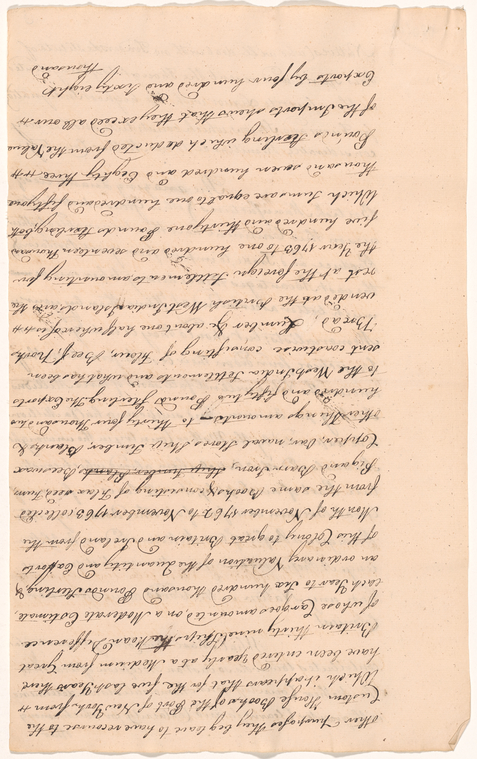 other Purposes They beg leave to have recourse to the
Custom House Books of the Port of New York, from
Which it appears that for the five last Years there
have been entered Yearly at a Medium from Great
Britain thirty nine Ships the Mean Difference
of whose Cargoes amounted, on a Moderate Estimate,
each Year to six hundred thousand Pounds Sterling &
an ordinary Valuation of the Quantity and Exports
of this Colony to great Britain and Ireland from the
Month of November 1762 to November 1763 collected
from the same Books & consisting of Flax seed, hum,
Pig and Barr Iron, Ship timber, Plank Beeswax
Copper, Oar, naval Stores, Ship Timber, Planks &
other Things amounts to thirty four Thousand six
hundred and fifty two Pounds Sterling The Exports
to the West India Settlements and what has been
sent coastwise consisting of Flour Beef, Pork
Bread, Lumber &c about one half whereof is
vended at the British West India Islands and the
rest at the foreign Settlements amounting for
the Year 1763 to one hundred and seventeen thousand
five hundred and thirty one Pounds Sterling both
Which Sums are equal to one hundred and fifty one
thousand seven hundred and Eighty three
Pounds Sterling which deducted from the Value
of the Imports shews that they exceed all our
Exports by four hundred and sixty eight
thousand